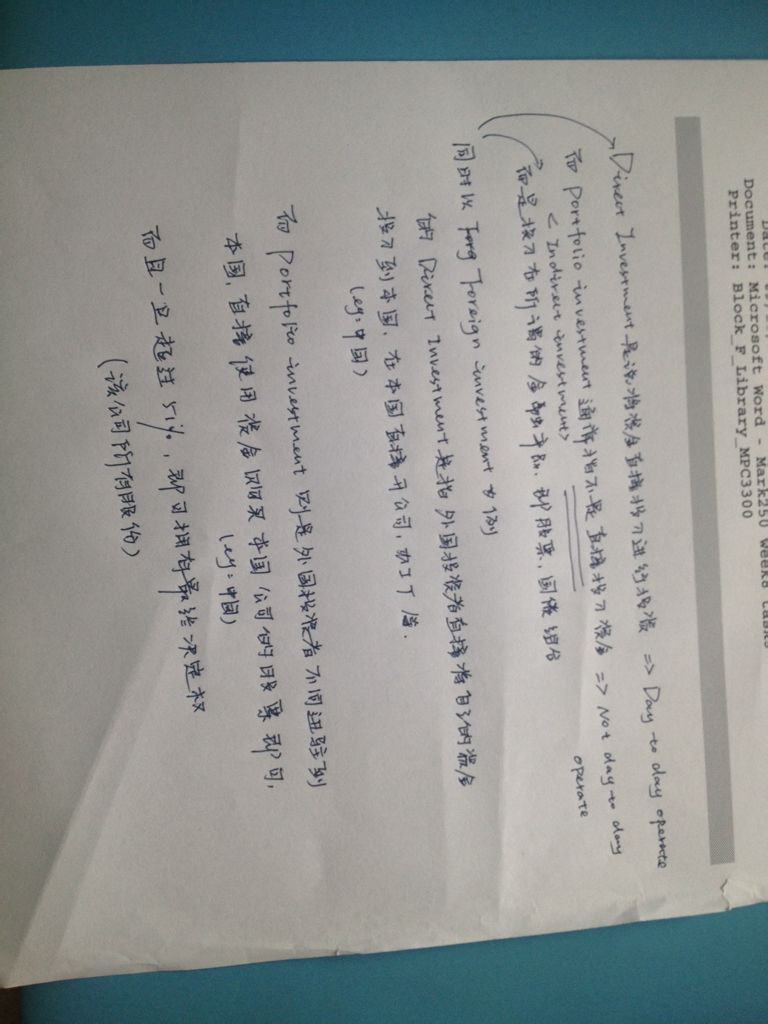 Document: Microsoft Word - Mark250 Weeks tasks
Printer: Block_F_Library_MPC3300
Direct Investment 是说将资金直接投入进行投资 => Day to day operate
而 Portfolio investment 通常指不是直接投入资金 => Not day to day operate
< Indirect investment>
而是投入在所谓的金融产品, 即股票, 国债组合
同时以 Foreign investment 为例
的 Direct Investment 是指外国投资者直接将自己的资金
投入到本国, 在本国直接开公司, 办工厂等.
(eg: 中国)
而 Portfolio investment 则是外国投资者不用进驻到
本国, 直接使用资金购买本国公司的股票即可,
(eg: 中国)
而且一旦超过 51%, 即可拥有最终决定权
(该公司所有股份)